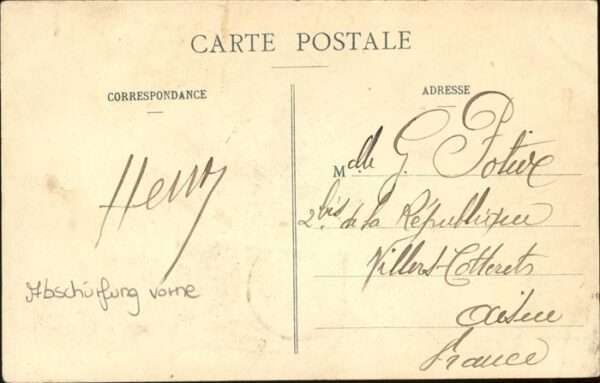 CARTE POSTALE
CORRESPONDANCE
ADRESSE
Henry
Mdlle G. Potier
2bis de la République
Villers-Cotterets
Aisne
France
Abschürfung vorne